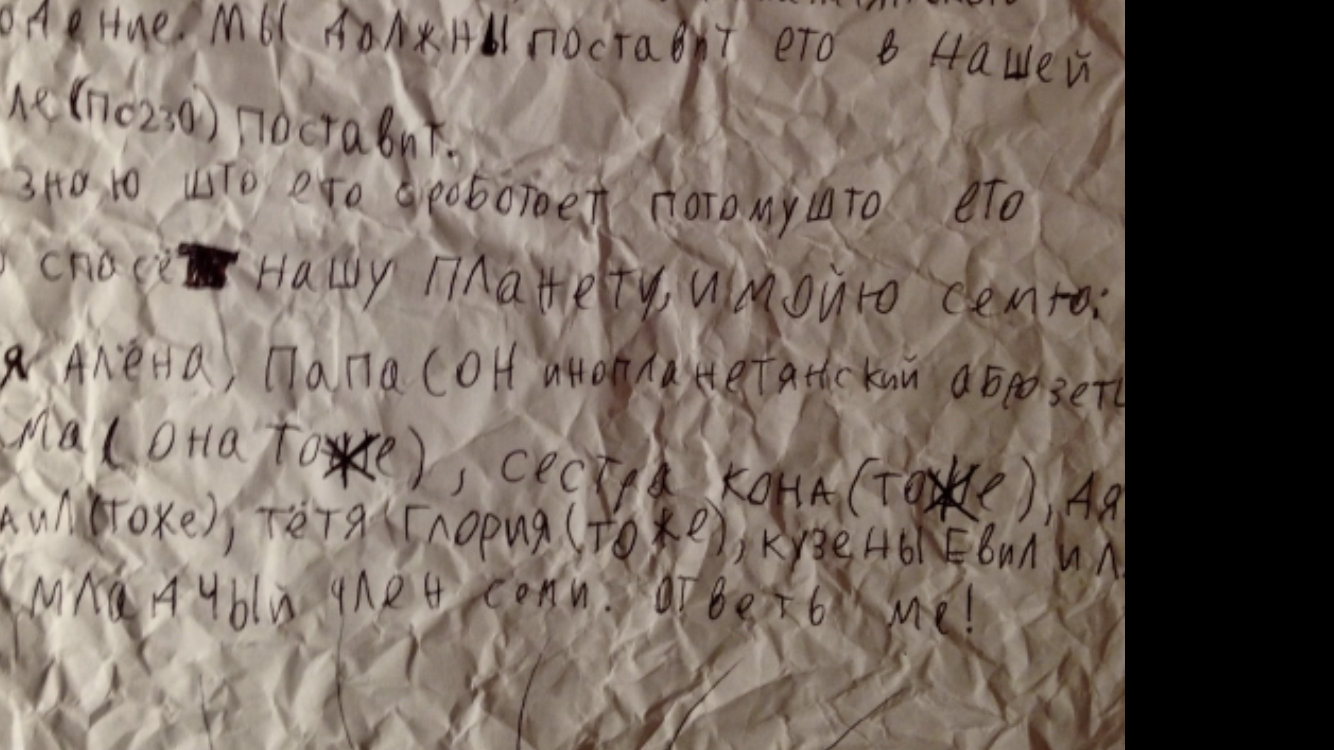 одение. Мы должны поставит ето в нашей
ле (по230) поставит.
знаю што ето сроботоет потомушто ето
спосё нашу планету, и мойю семю:
я Алёна, Папа (он инопланетянский
ма (она тоже), сестра кона (тоже), дя
аил (тоже), тётя Глория (тоже), кузены Евил и л
младчый член семи. ответь ме!